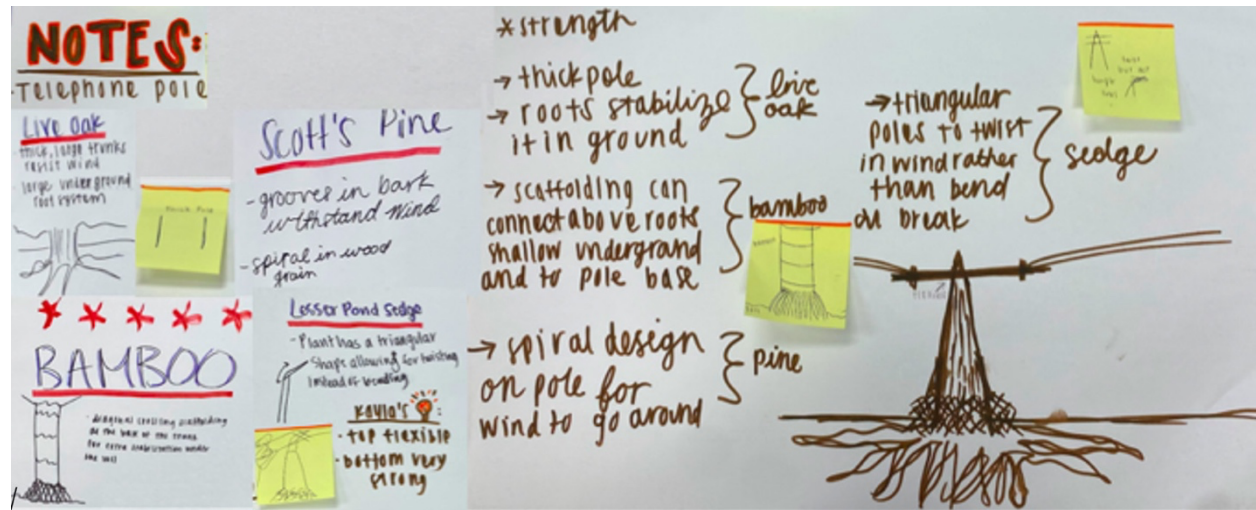 NOTES:
-Telephone pole
Live Oak
-thick, large trunks
resist wind
-large underground
root system
Scott's Pine
-grooves in bark
withstand wind
-spiral in wood
grain
BAMBOO
-diagonal crossing scaffolding
at the base of the trunk
for extra stabilization under
the soil
Lesser Pond Sedge
-Plant has a triangular
shape allowing for twisting
instead of bending
Kayla's :
-top flexible
-bottom very
strong
*strength
→ thick pole
→ roots stabilize
it in ground
live
oak
→ scaffolding can
connect above roots
shallow underground
and to pole base
bamboo
→ spiral design
on pole for
wind to go around
pine
→triangular
poles to twist
in wind rather
than bend
or break
sedge